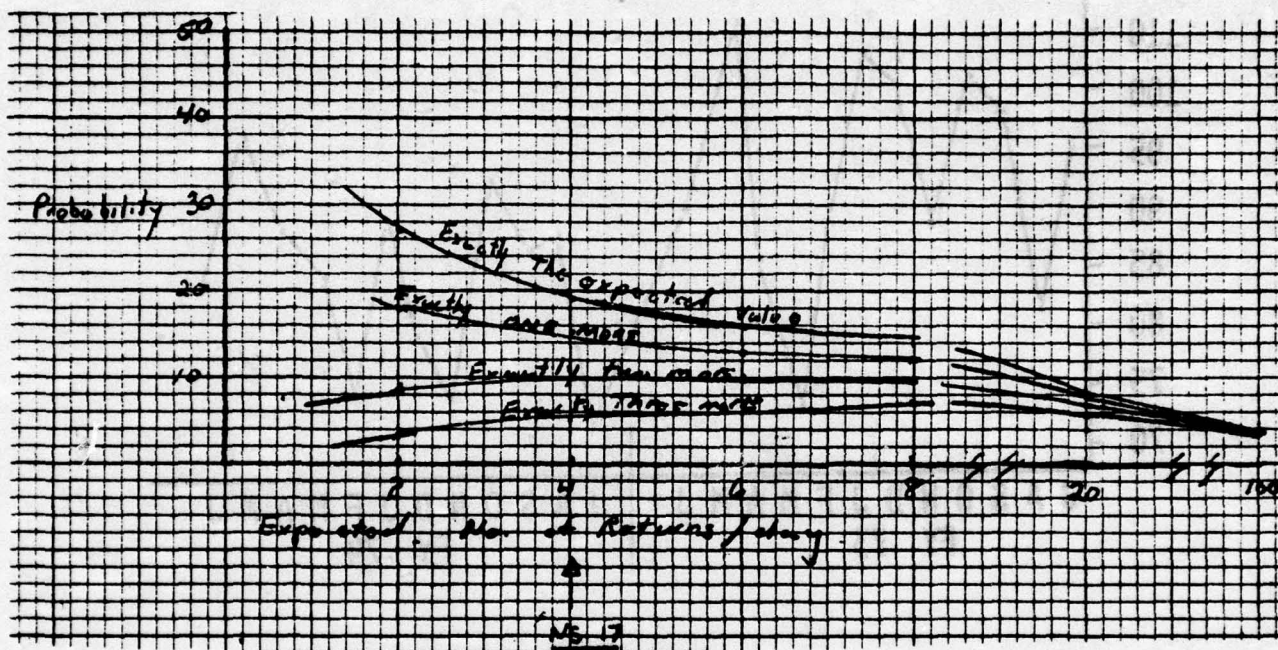 50
40
Probability 30
20
10
Exactly The expected value
Exactly one more
Exactly two more
Exactly Three more
2 4 6 8 20 100
Expected No. of Returns / day
NS 17